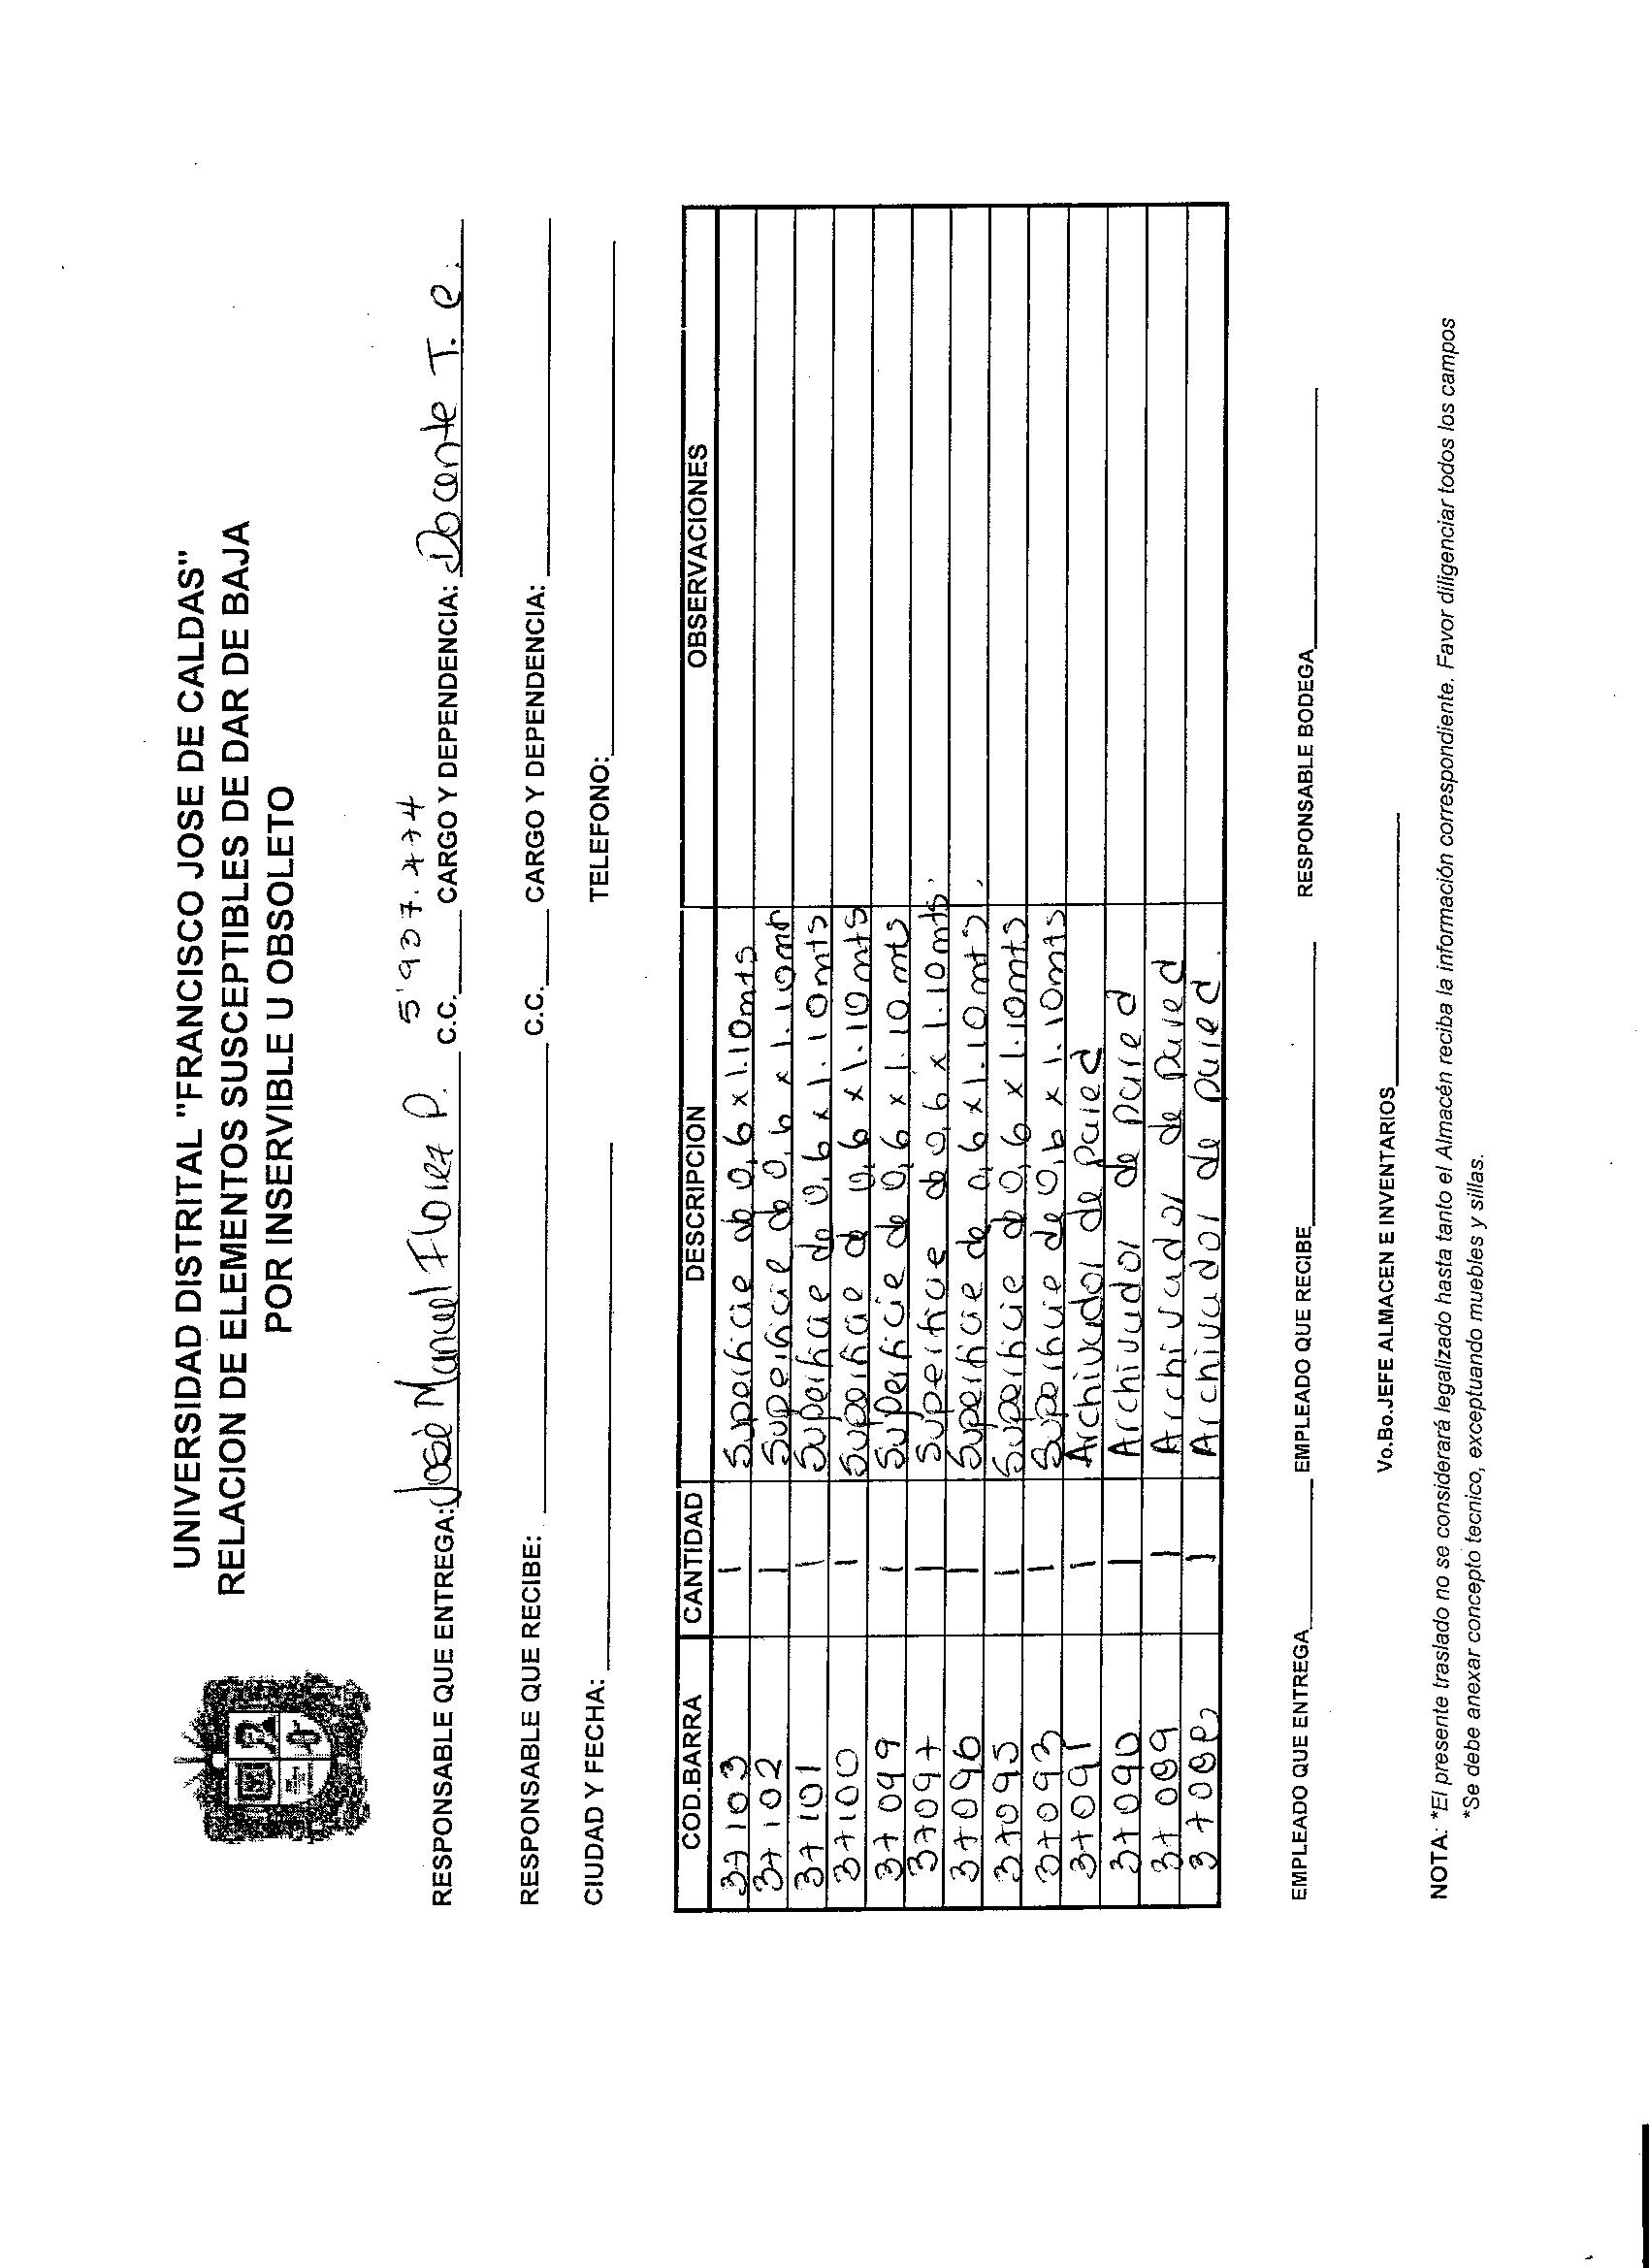 UNIVERSIDAD DISTRITAL "FRANCISCO JOSE DE CALDAS"
RELACION DE ELEMENTOS SUSCEPTIBLES DE DAR DE BAJA
POR INSERVIBLE U OBSOLETO
RESPONSABLE QUE ENTREGA: José Manuel Florez P. C.C. 5'937.474 CARGO Y DEPENDENCIA: Docente T.C.
RESPONSABLE QUE RECIBE: C.C. CARGO Y DEPENDENCIA:
CIUDAD Y FECHA: TELEFONO:
COD.BARRA CANTIDAD DESCRIPCION OBSERVACIONES
37103 1 Superficie de 0,6 x 1.10mts
37102 1 Superficie de 0,6 x 1.10mt
37101 1 Superficie de 0,6 x 1.10mts
37100 1 Superficie de 0,6 x 1.10mts
37099 1 Superficie de 0,6 x 1.10mts
37097 1 Superficie de 0,6 x 1.10mts.
37096 1 Superficie de 0,6 x 1.10mts,
37095 1 Superficie de 0,6 x 1.10mts
37093 1 Superficie de 0,6 x 1.10mts
37091 1 Archivador de pared
37090 1 Archivador de pared
37089 1 Archivador de pared
3708 1 Archivador de pared.
EMPLEADO QUE ENTREGA EMPLEADO QUE RECIBE RESPONSABLE BODEGA
Vo.Bo.JEFE ALMACEN E INVENTARIOS
NOTA: *El presente traslado no se considerará legalizado hasta tanto el Almacén reciba la información correspondiente. Favor diligenciar todos los campos
*Se debe anexar concepto tecnico, exceptuando muebles y sillas.